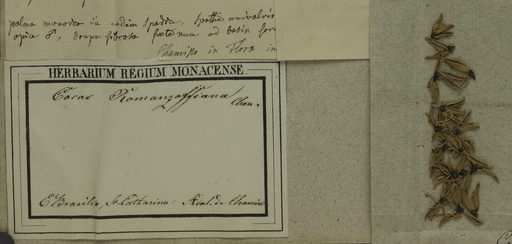 palma monoica in eadem spadice, spatha univalvis
apice
Chamisso in Flora in
HERBARIUM REGIUM MONACENSE.
Cocos Romanzoffiana Cham.
E Brasilia, St. Catharina: Adal. de Chamisso